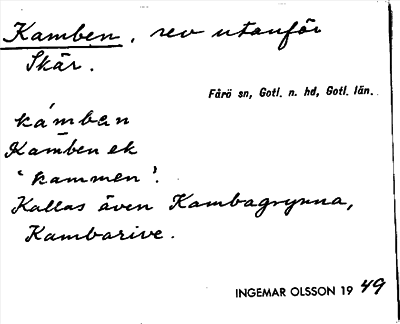 Kamben, rev utanför
Skär.
Fårö sn, Gotl. n. hd, Gotl. län.
kámbɛn
Kamben ek
'kammen'.
Kallas även Kambagrynna,
Kambarive.
INGEMAR OLSSON 1949